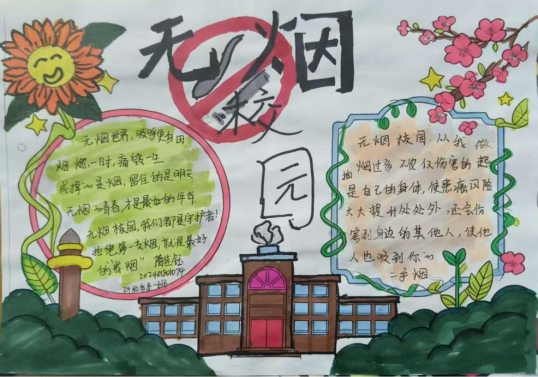 无烟
校
园
无烟世界,
烟燃一时,痛铁一生
掉的是烟,留住的是明天
无烟青春,才是最好的年华
无烟校园,我们都是守护者!
拒绝第一支烟,就是最好
的戒烟"
无烟校园,从我做
抽烟过多不仅仅伤害的
是自己的身体,使患病风险
大大提升处处外,还会伤
害到身边的其他人,使他
人也吸到你的
二手烟